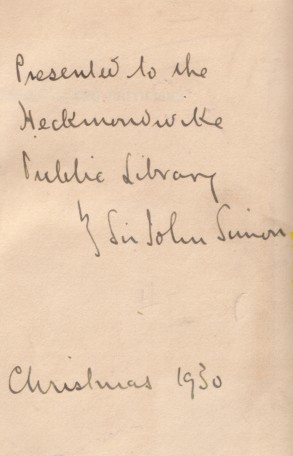 Presented to the
Heckmondwike
Public Library
by Sir John Simon
Christmas 1930